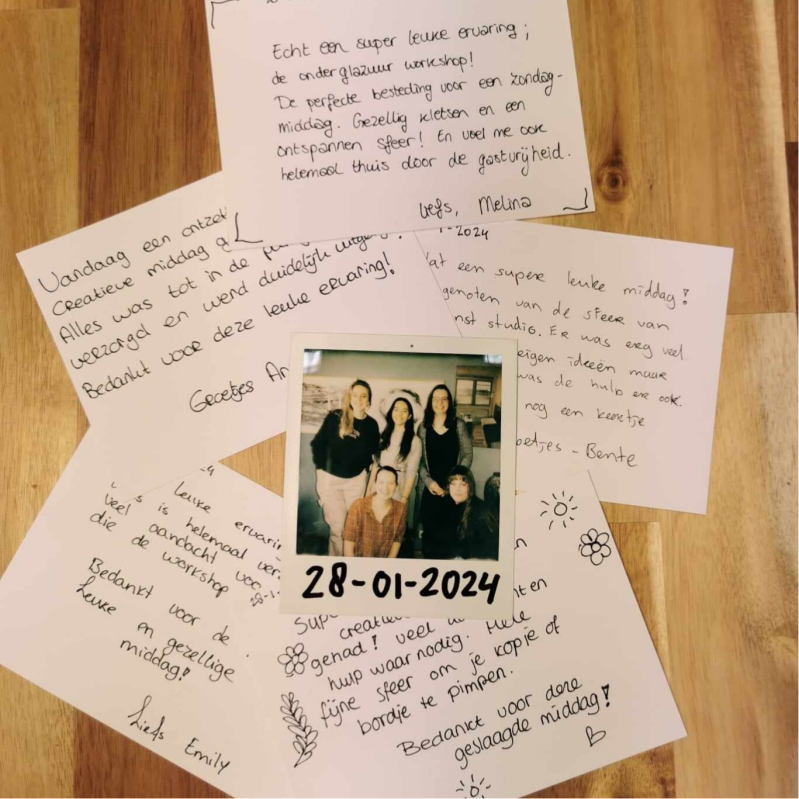 Echt een super leuke ervaring;
de onderglazuur workshop!
De perfecte besteding voor een zondag-
middag. Gezellig kletsen en een
ontspannen sfeer! En voel me ook
helemaal thuis door de gastvrijheid.
Liefs, Melina
Vandaag een
creatieve middag
Alles was tot in de
verzorgd en werd duidelijk
Bedankt voor deze leuke ervaring!
Groetjes
2024
een supere leuke middag!
genoten van de sfeer van
studio. Er was erg veel
eigen ideeën maar
was de hulp er ook.
nog een keertje
Bente
28-01-2024
leuke
is helemaal
veel aandacht
die de workshop
Bedankt voor de
leuke en gezellige
middag!
Liefs Emily
genad! veel
hulp waar nodig. Hele
fijne sfeer om je kopje of
bordje te pimpen.
Bedankt voor deze
geslaagde middag!
B